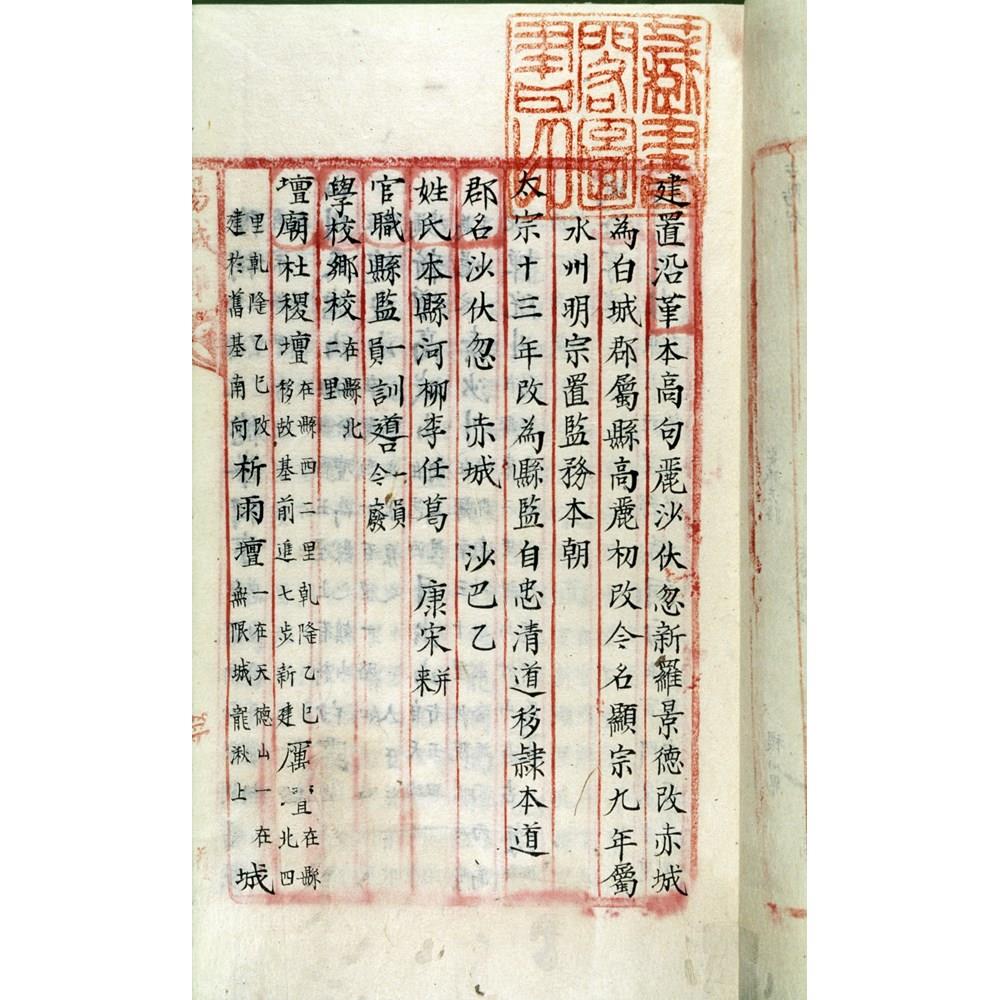 建置沿革本高句麗沙伏忽新羅景德改赤城
為白城郡屬縣高麗初改今名顯宗九年屬
水州明宗置監務本朝
太宗十三年改為縣監自忠清道移隷本道
郡名沙伏忽 赤城 沙巴乙
姓氏本縣河柳李任葛 康宋幷来
官職縣監一員訓導一員今廢
學校鄉校在縣北二里
壇廟社稷壇在縣西二里乾隆乙巳移故基前進七步新建厲壇在縣北四
里乾隆乙巳改建於舊基南向祈雨壇一在天德山一在無限城龍湫上城